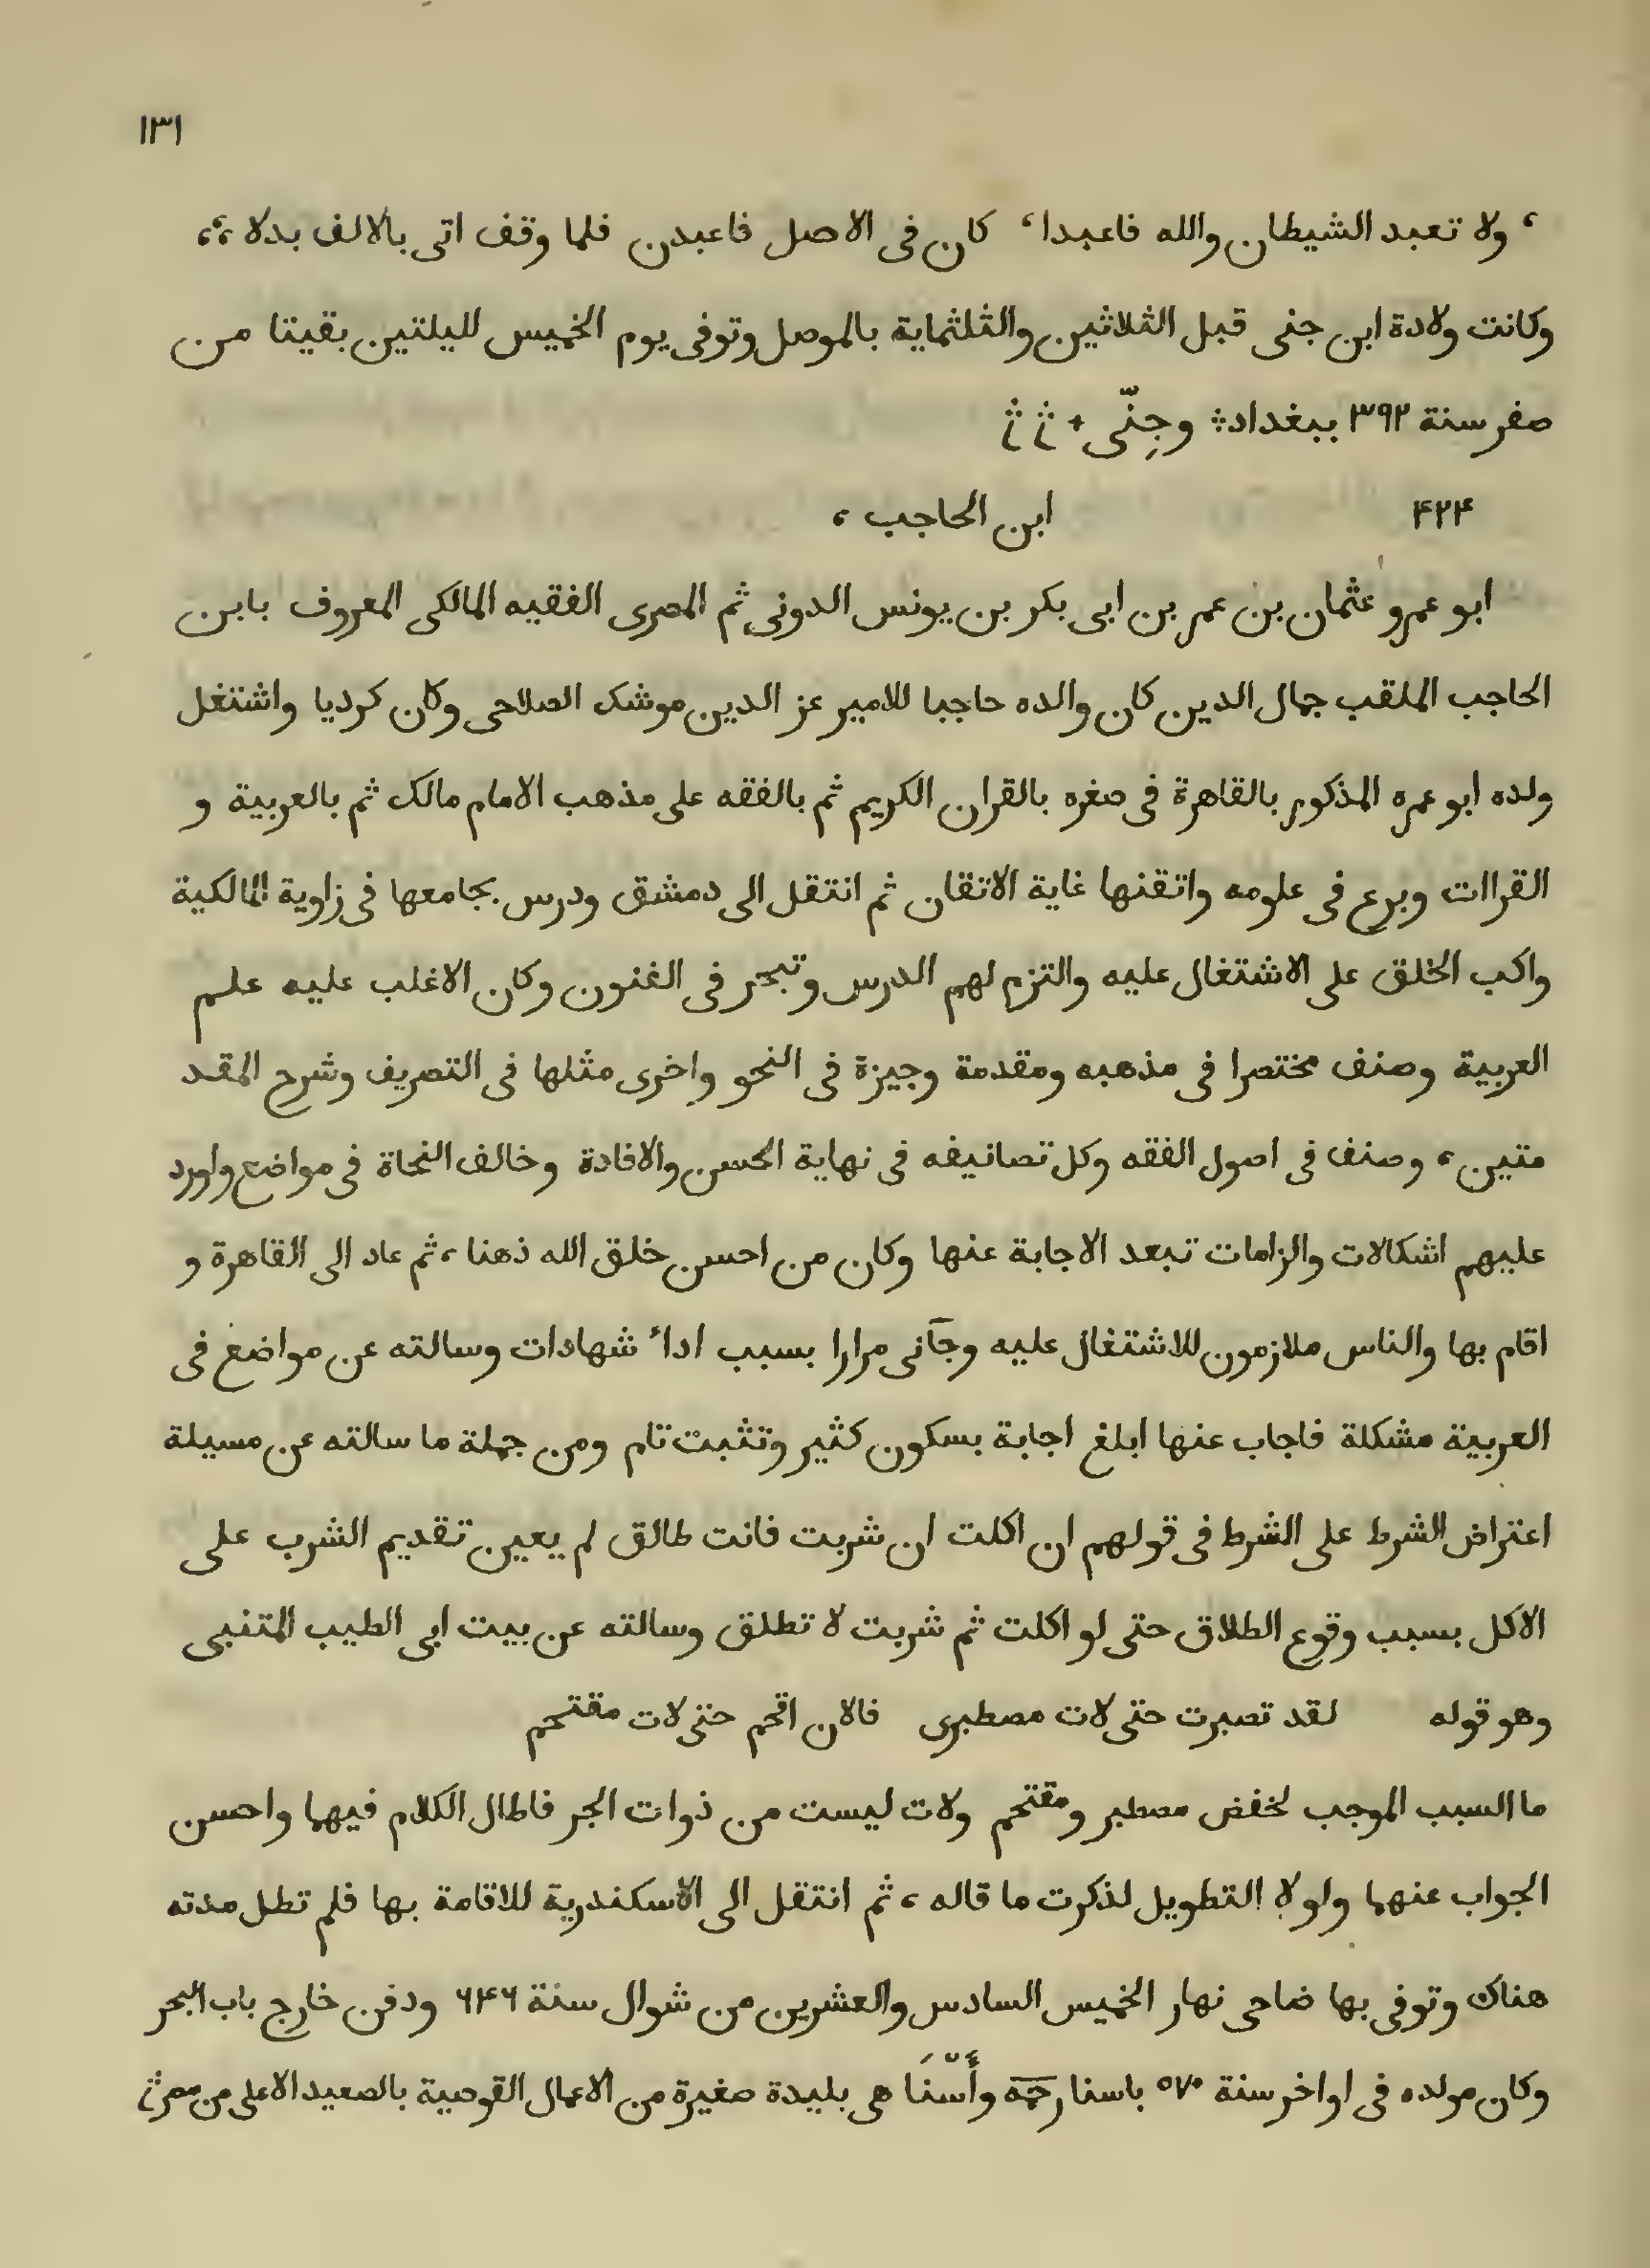 ١٣١
، ولا تعبد الشيطان والله فاعبدا، كان فى الاصل فاعبدن فلما وقف اتى بالالف بدلا ،،
وكانت ولادة ابن جنى قبل الثلاثين والثلثماية بالموصل وتوفى يوم الخميس لليلتين بقيتا من
صفر سنة ٣٩٢ ببغداد وجِنّى
٤٢٤ ابن الحاجب ،
ابو عمرو عثمان بن عمر بن ابى بكر بن يونس الدونى ثم المصرى الفقيه المالكى المعروف بابن
الحاجب الملقب جمال الدين كان والده حاجبا للامير عز الدين موشك الصلاحى وكان كرديا واشتغل
ولده ابو عمره المذكور بالقاهرة فى صغره بالقران الكريم ثم بالفقه على مذهب الامام مالك ثم بالعربية و
القراات وبرع فى علومه واتقنها غاية الاتقان ثم انتقل الى دمشق ودرس بجامعها فى زاوية المالكية
واكب الخلق على الاشتغال عليه والتزم لهم الدرس وتبحر فى الفنون وكان الاغلب عليه علم
العربية وصنف مختصرا فى مذهبه ومقدمة وجيزة فى النحو واخرى مثلها فى التصريف وشرح المقد
متين ، وصنف فى اصول الفقه وكل تصانيفه فى نهاية الحسن والافادة وخالف النحاة فى مواضع واورد
عليهم اشكالات والزامات تبعد الاجابة عنها وكان من احسن خلق الله ذهنا ، ثم عاد الى القاهرة و
اقام بها والناس ملازمون للاشتغال عليه وجآنى مرارا بسبب اداء شهادات وسالته عن مواضع فى
العربية مشكلة فاجاب عنها ابلغ اجابة بسكون كثير وتثبت تام ومن جملة ما سالته عن مسيلة
اعتراض الشرط على الشرط فى قولهم ان اكلت ان شربت فانت طالق لم يعين تقديم الشرب على
الاكل بسبب وقوع الطلاق حتى لو اكلت ثم شربت لا تطلق وسالته عن بيت ابى الطيب المتنبى
وهو قوله لقد تصبرت حتى لات مصطبرى فالان اقحم حتى لات مقتحم
ما السبب الموجب لخفض مصطبر ومقتحم ولات ليست من ذوات الجر فاطال الكلام فيهما واحسن
الجواب عنهما ولولا التطويل لذكرت ما قاله ، ثم انتقل الى الاسكندرية للاقامة بها فلم تطل مدته
هناك وتوفى بها ضاحى نهار الخميس السادس والعشرين من شوال سنة ٦٤٦ ودفن خارج باب البحر
وكان مولده فى اواخر سنة ٥٧٠ باسنا رحمه وأَسْنَا هى بليدة صغيرة من الاعمال القوصية بالصعيد الاعلى من مصر